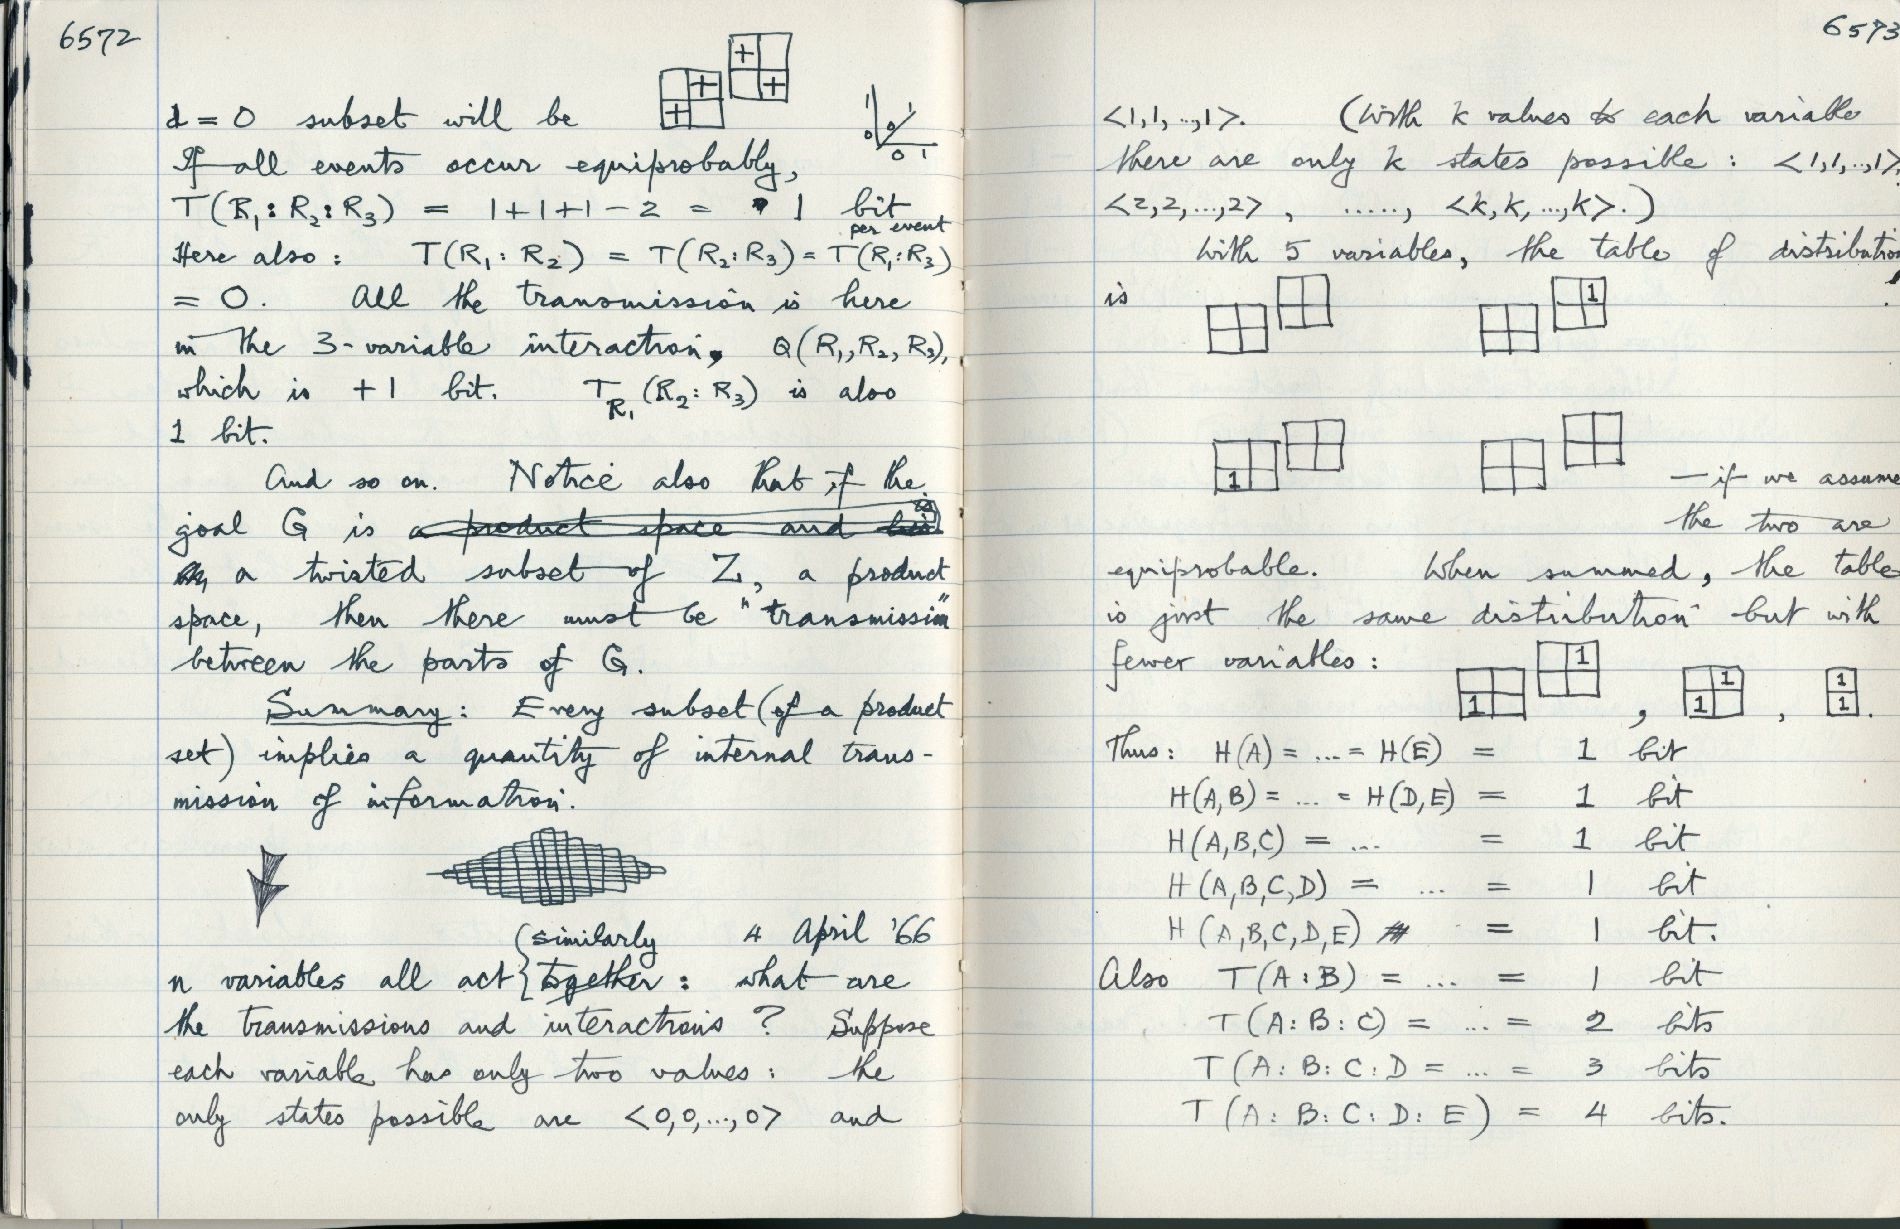 6572
d = 0 subset will be
+ + + +
1 0 1 0 0 1
If all events occur equiprobably,
T(R₁:R₂:R₃) = 1+1+1-2 = 1 bit
per event
Here also: T(R₁:R₂) = T(R₂:R₃) = T(R₁:R₃)
= 0. All the transmission is here
in the 3-variable interaction, Q(R₁,R₂,R₃),
which is +1 bit. T_R₁(R₂:R₃) is also
1 bit.
And so on. Notice also that if the
goal G is a product space and is
a twisted subset of Z, a product
space, then there must be "transmission"
between the parts of G.
Summary: Every subset (of a product
set) implies a quantity of internal trans-
mission of information.
4 April '66
similarly
n variables all act together: what are
the transmissions and interactions? Suppose
each variable has only two values: the
only states possible are <0,0,...,0> and
6573
<1,1,..,1>. (With k values to each variable
there are only k states possible: <1,1,..,1>,
<2,2,...,2>, ....., <k,k,...,k>.)
With 5 variables, the table of distribution
is
1
1
— if we assume
the two are
equiprobable. When summed, the table
is just the same distribution but with
fewer variables:
1 1 , 1 1 , 1 1 .
Thus: H(A) = ... = H(E) = 1 bit
H(A,B) = ... = H(D,E) = 1 bit
H(A,B,C) = ... = 1 bit
H(A,B,C,D) = ... = 1 bit
H(A,B,C,D,E) = 1 bit.
Also T(A:B) = ... = 1 bit
T(A:B:C) = ... = 2 bits
T(A:B:C:D = ... = 3 bits
T(A:B:C:D:E) = 4 bits.